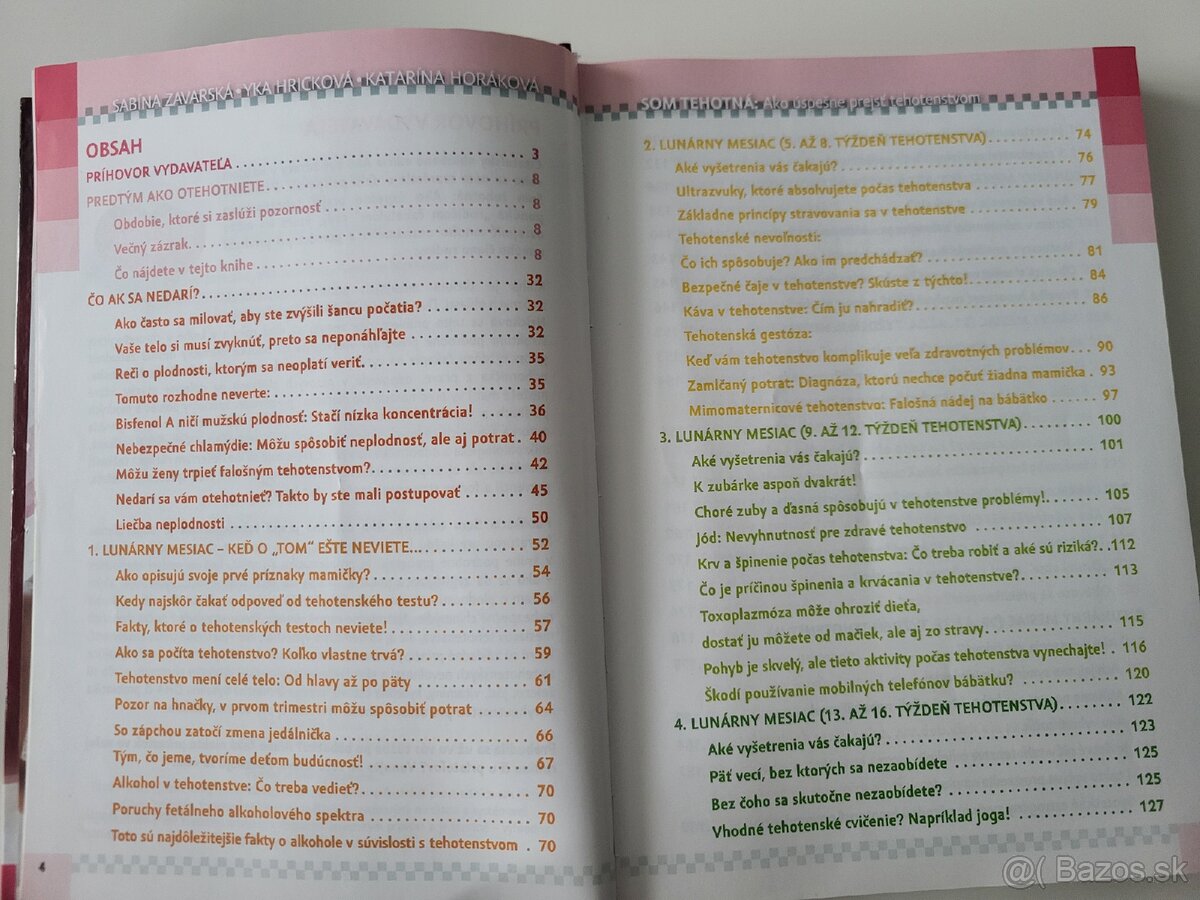 SABINA ZAVARSKÁ • YKA HRICKOVÁ • KATARÍNA HORÁKOVÁ
OBSAH
PRÍHOVOR VYDAVATEĽA . . . . . . . . . . 3
PREDTÝM AKO OTEHOTNIETE . . . . . . . . . . 8
Obdobie, ktoré si zaslúži pozornosť . . . . . . . . . . 8
Večný zázrak. . . . . . . . . . 8
Čo nájdete v tejto knihe . . . . . . . . . . 8
ČO AK SA NEDARÍ? . . . . . . . . . . 32
Ako často sa milovať, aby ste zvýšili šancu počatia? . . . . . . . . . . 32
Vaše telo si musí zvyknúť, preto sa neponáhľajte . . . . . . . . . . 32
Reči o plodnosti, ktorým sa neoplatí veriť. . . . . . . . . . 35
Tomuto rozhodne neverte: . . . . . . . . . . 35
Bisfenol A ničí mužskú plodnosť: Stačí nízka koncentrácia! . . . . . . 36
Nebezpečné chlamýdie: Môžu spôsobiť neplodnosť, ale aj potrat . 40
Môžu ženy trpieť falošným tehotenstvom? . . . . . . . . . . 42
Nedarí sa vám otehotnieť? Takto by ste mali postupovať . . . . . . 45
Liečba neplodnosti . . . . . . . . . . 50
1. LUNÁRNY MESIAC – KEĎ O „TOM“ EŠTE NEVIETE... . . . . . . . . . . 52
Ako opisujú svoje prvé príznaky mamičky? . . . . . . . . . . 54
Kedy najskôr čakať odpoveď od tehotenského testu? . . . . . . . . . . 56
Fakty, ktoré o tehotenských testoch neviete! . . . . . . . . . . 57
Ako sa počíta tehotenstvo? Koľko vlastne trvá? . . . . . . . . . . 59
Tehotenstvo mení celé telo: Od hlavy až po päty . . . . . . . . . . 61
Pozor na hnačky, v prvom trimestri môžu spôsobiť potrat . . . . . . 64
So zápchou zatočí zmena jedálnička . . . . . . . . . . 66
Tým, čo jeme, tvoríme deťom budúcnosť! . . . . . . . . . . 67
Alkohol v tehotenstve: Čo treba vedieť? . . . . . . . . . . 70
Poruchy fetálneho alkoholového spektra . . . . . . . . . . 70
Toto sú najdôležitejšie fakty o alkohole v súvislosti s tehotenstvom . 70
4
SOM TEHOTNÁ: Ako úspešne prejsť tehotenstvom
2. LUNÁRNY MESIAC (5. AŽ 8. TÝŽDEŇ TEHOTENSTVA) . . . . . . . . . . 74
Aké vyšetrenia vás čakajú? . . . . . . . . . . 76
Ultrazvuky, ktoré absolvujete počas tehotenstva . . . . . . . . . . 77
Základne princípy stravovania sa v tehotenstve . . . . . . . . . . 79
Tehotenské nevoľnosti:
Čo ich spôsobuje? Ako im predchádzať? . . . . . . . . . . 81
Bezpečné čaje v tehotenstve? Skúste z týchto! . . . . . . . . . . 84
Káva v tehotenstve: Čím ju nahradiť? . . . . . . . . . . 86
Tehotenská gestóza:
Keď vám tehotenstvo komplikuje veľa zdravotných problémov . . . 90
Zamlčaný potrat: Diagnóza, ktorú nechce počuť žiadna mamička . 93
Mimomaternicové tehotenstvo: Falošná nádej na bábätko . . . . . . 97
3. LUNÁRNY MESIAC (9. AŽ 12. TÝŽDEŇ TEHOTENSTVA) . . . . . . . . . . 100
Aké vyšetrenia vás čakajú? . . . . . . . . . . 101
K zubárke aspoň dvakrát!
Choré zuby a ďasná spôsobujú v tehotenstve problémy! . . . . . . . 105
Jód: Nevyhnutnosť pre zdravé tehotenstvo . . . . . . . . . . 107
Krv a špinenie počas tehotenstva: Čo treba robiť a aké sú riziká? . . 112
Čo je príčinou špinenia a krvácania v tehotenstve? . . . . . . . . . . 113
Toxoplazmóza môže ohroziť dieťa,
dostať ju môžete od mačiek, ale aj zo stravy . . . . . . . . . . 115
Pohyb je skvelý, ale tieto aktivity počas tehotenstva vynechajte! . 116
Škodí používanie mobilných telefónov bábätku? . . . . . . . . . . 120
4. LUNÁRNY MESIAC (13. AŽ 16. TÝŽDEŇ TEHOTENSTVA) . . . . . . . . . . 122
Aké vyšetrenia vás čakajú? . . . . . . . . . . 123
Päť vecí, bez ktorých sa nezaobídete . . . . . . . . . . 125
Bez čoho sa skutočne nezaobídete? . . . . . . . . . . 125
Vhodné tehotenské cvičenie? Napríklad joga! . . . . . . . . . . 127
@( Bazos.sk